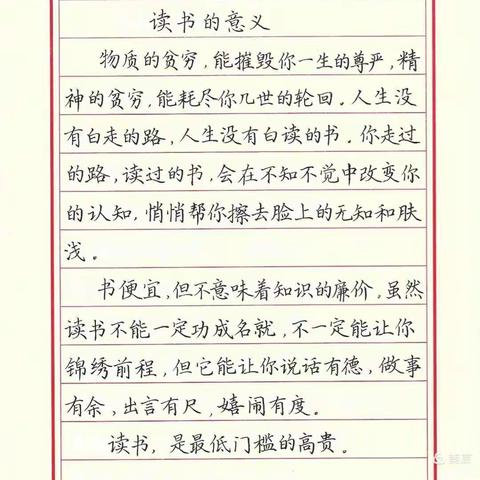 读书的意义
物质的贫穷，能摧毁你一生的尊严，精
神的贫穷，能耗尽你几世的轮回。人生没
有白走的路，人生没有白读的书。你走过
的路，读过的书，会在不知不觉中改变你
的认知，悄悄帮你擦去脸上的无知和肤
浅。
书便宜，但不意味着知识的廉价。虽然
读书不能一定功成名就，不一定能让你
锦绣前程，但它能让你说话有德，做事
有余，出言有尺，嬉闹有度。
读书，是最低门槛的高贵。
美篇